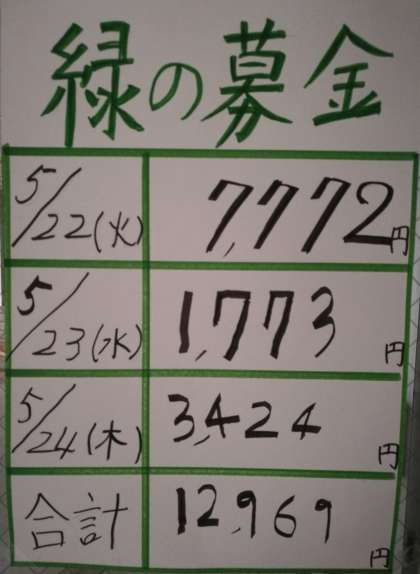 緑の募金
5/22(火) 7,772円
5/23(水) 1,773円
5/24(木) 3,424円
合計 12,969円